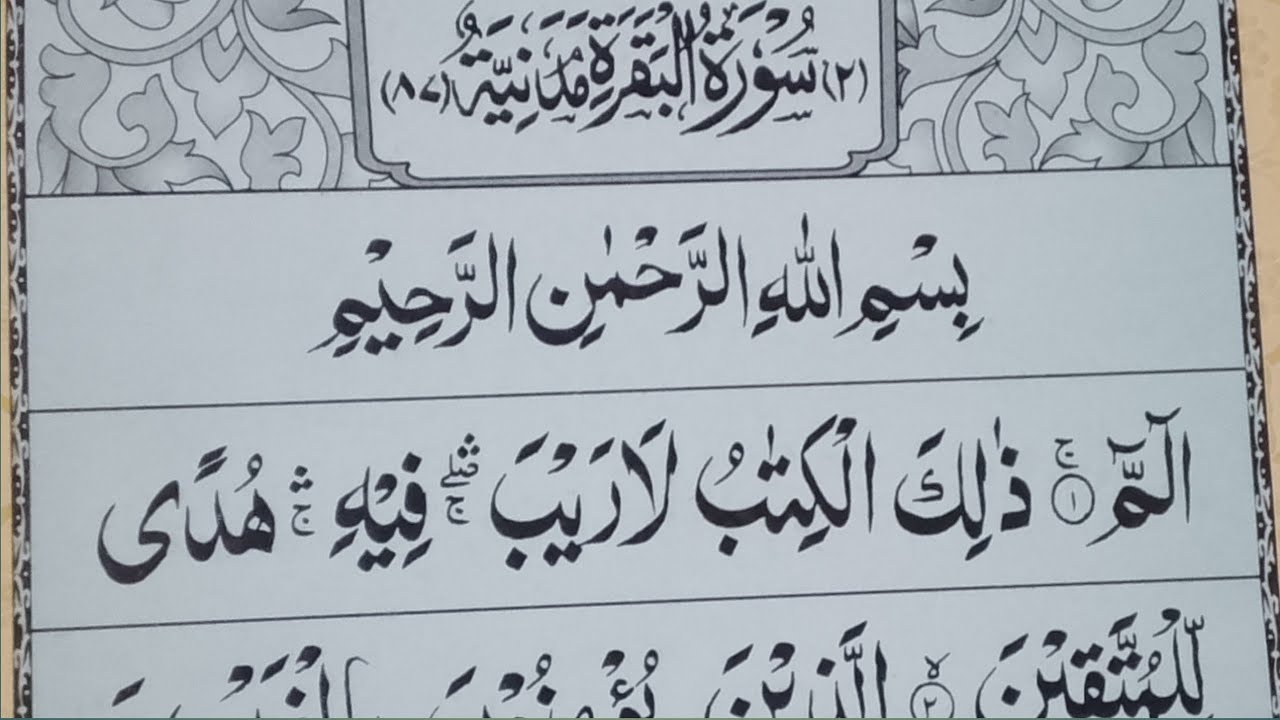 (٢) سُوْرَةُ الْبَقَرَةِ مَدَنِيَّةٌ (٨٧)
بِسْمِ اللهِ الرَّحْمٰنِ الرَّحِيْمِ
الٓمّٓ ۚ ١ ذٰلِكَ الْكِتٰبُ لَا رَيْبَ ۛۖۚ فِيْهِ ۛۚ هُدًى
لِّلْمُتَّقِيْنَ ۙ ٢ الَّذِيْنَ يُؤْمِنُوْنَ بِالْغَيْبِ